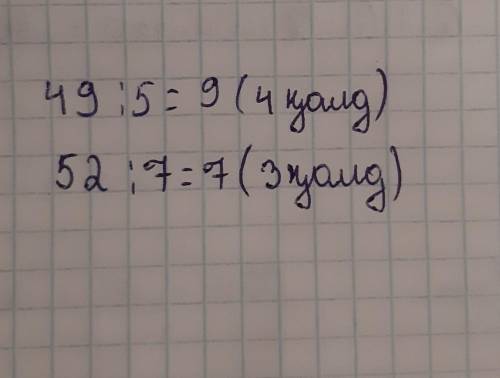 49 : 5 = 9 (4 қалд)
52 : 7 = 7 (3 қалд)